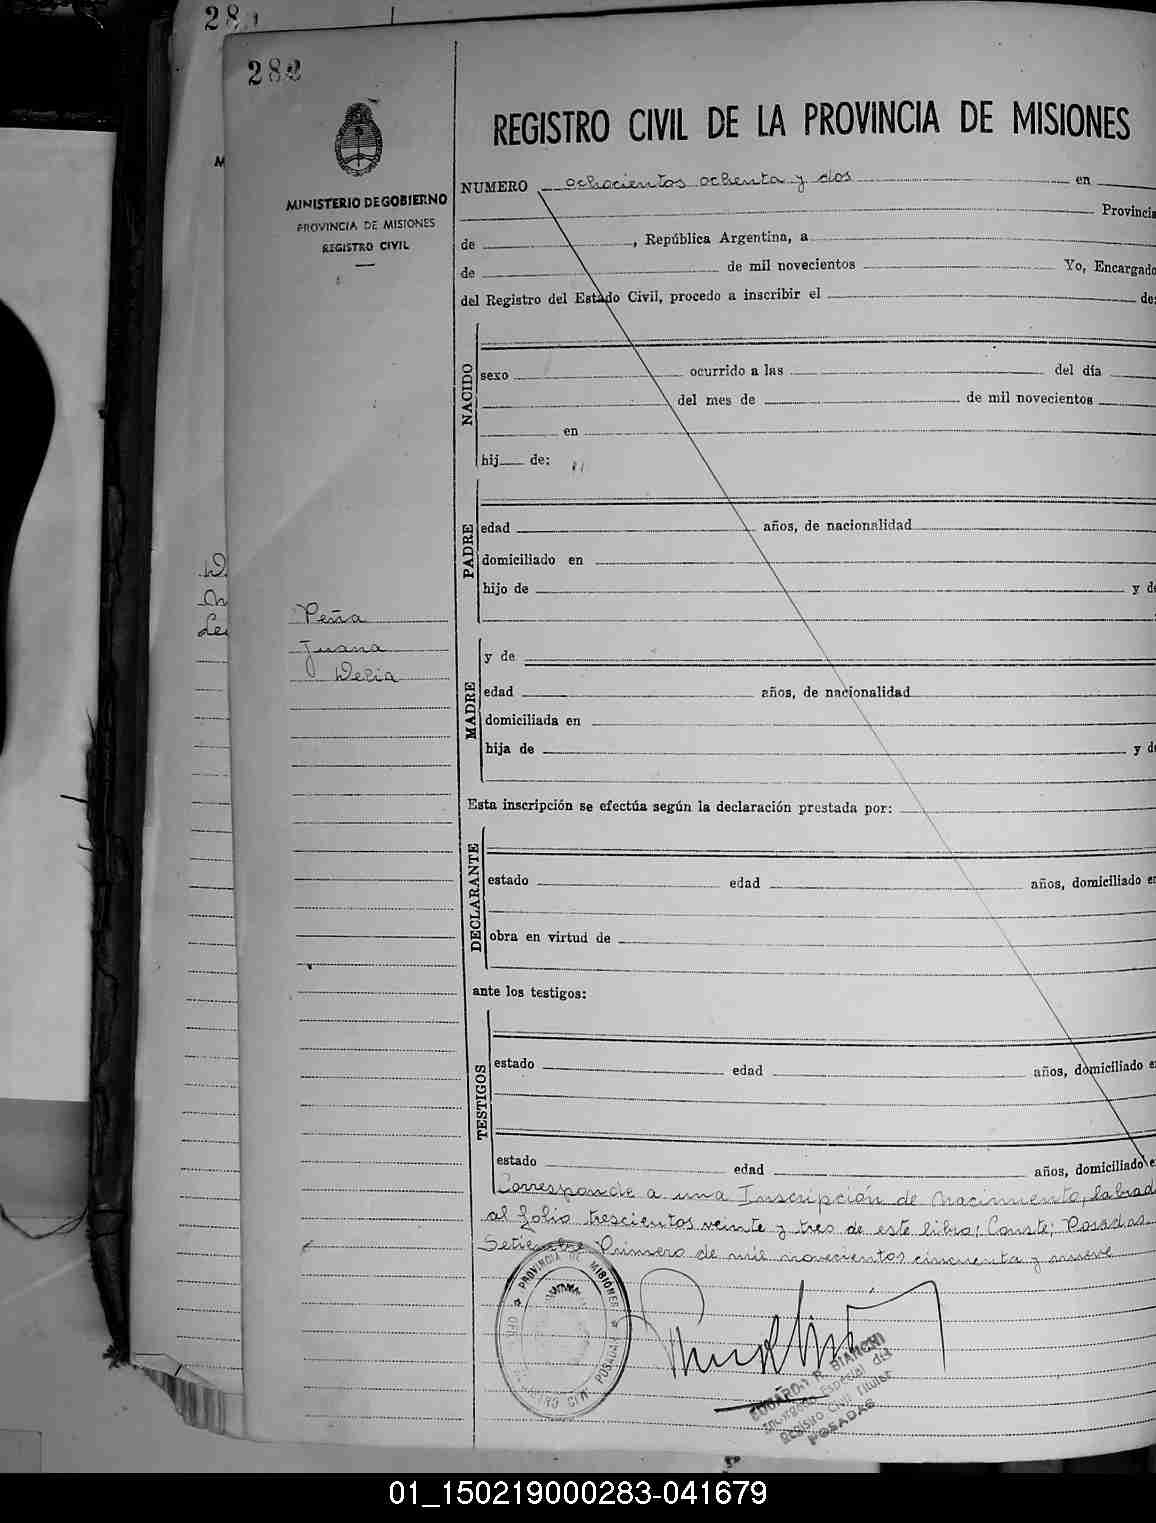 28
282
MINISTERIO DE GOBIERNO
PROVINCIA DE MISIONES
REGISTRO CIVIL
Peña
Juana
Delia
REGISTRO CIVIL DE LA PROVINCIA DE MISIONES
NUMERO ochocientos ochenta y dos en
Provincia
de , República Argentina, a
de de mil novecientos Yo, Encargado
del Registro del Estado Civil, procedo a inscribir el de:
NACIDO
sexo ocurrido a las del día
del mes de de mil novecientos
en
hij de:
PADRE
edad años, de nacionalidad
domiciliado en
hijo de y de
MADRE
y de
edad años, de nacionalidad
domiciliada en
hija de y de
Esta inscripción se efectúa según la declaración prestada por:
DECLARANTE
estado edad años, domiciliado en
obra en virtud de
ante los testigos:
TESTIGOS
estado edad años, domiciliado e
estado edad años, domiciliado e
Corresponde a una Inscripción de Nacimiento, labrad
al folio trescientos veinte y tres de este libro; Conste; Posadas
Setiembre Primero de mil novecientos cincuenta y nueve
PROVINCIA DE MISIONES
POSADAS
EDUARDO R. BIANCHI
Encargado Especial del
Registro Civil Titular
POSADAS
01_150219000283-041679